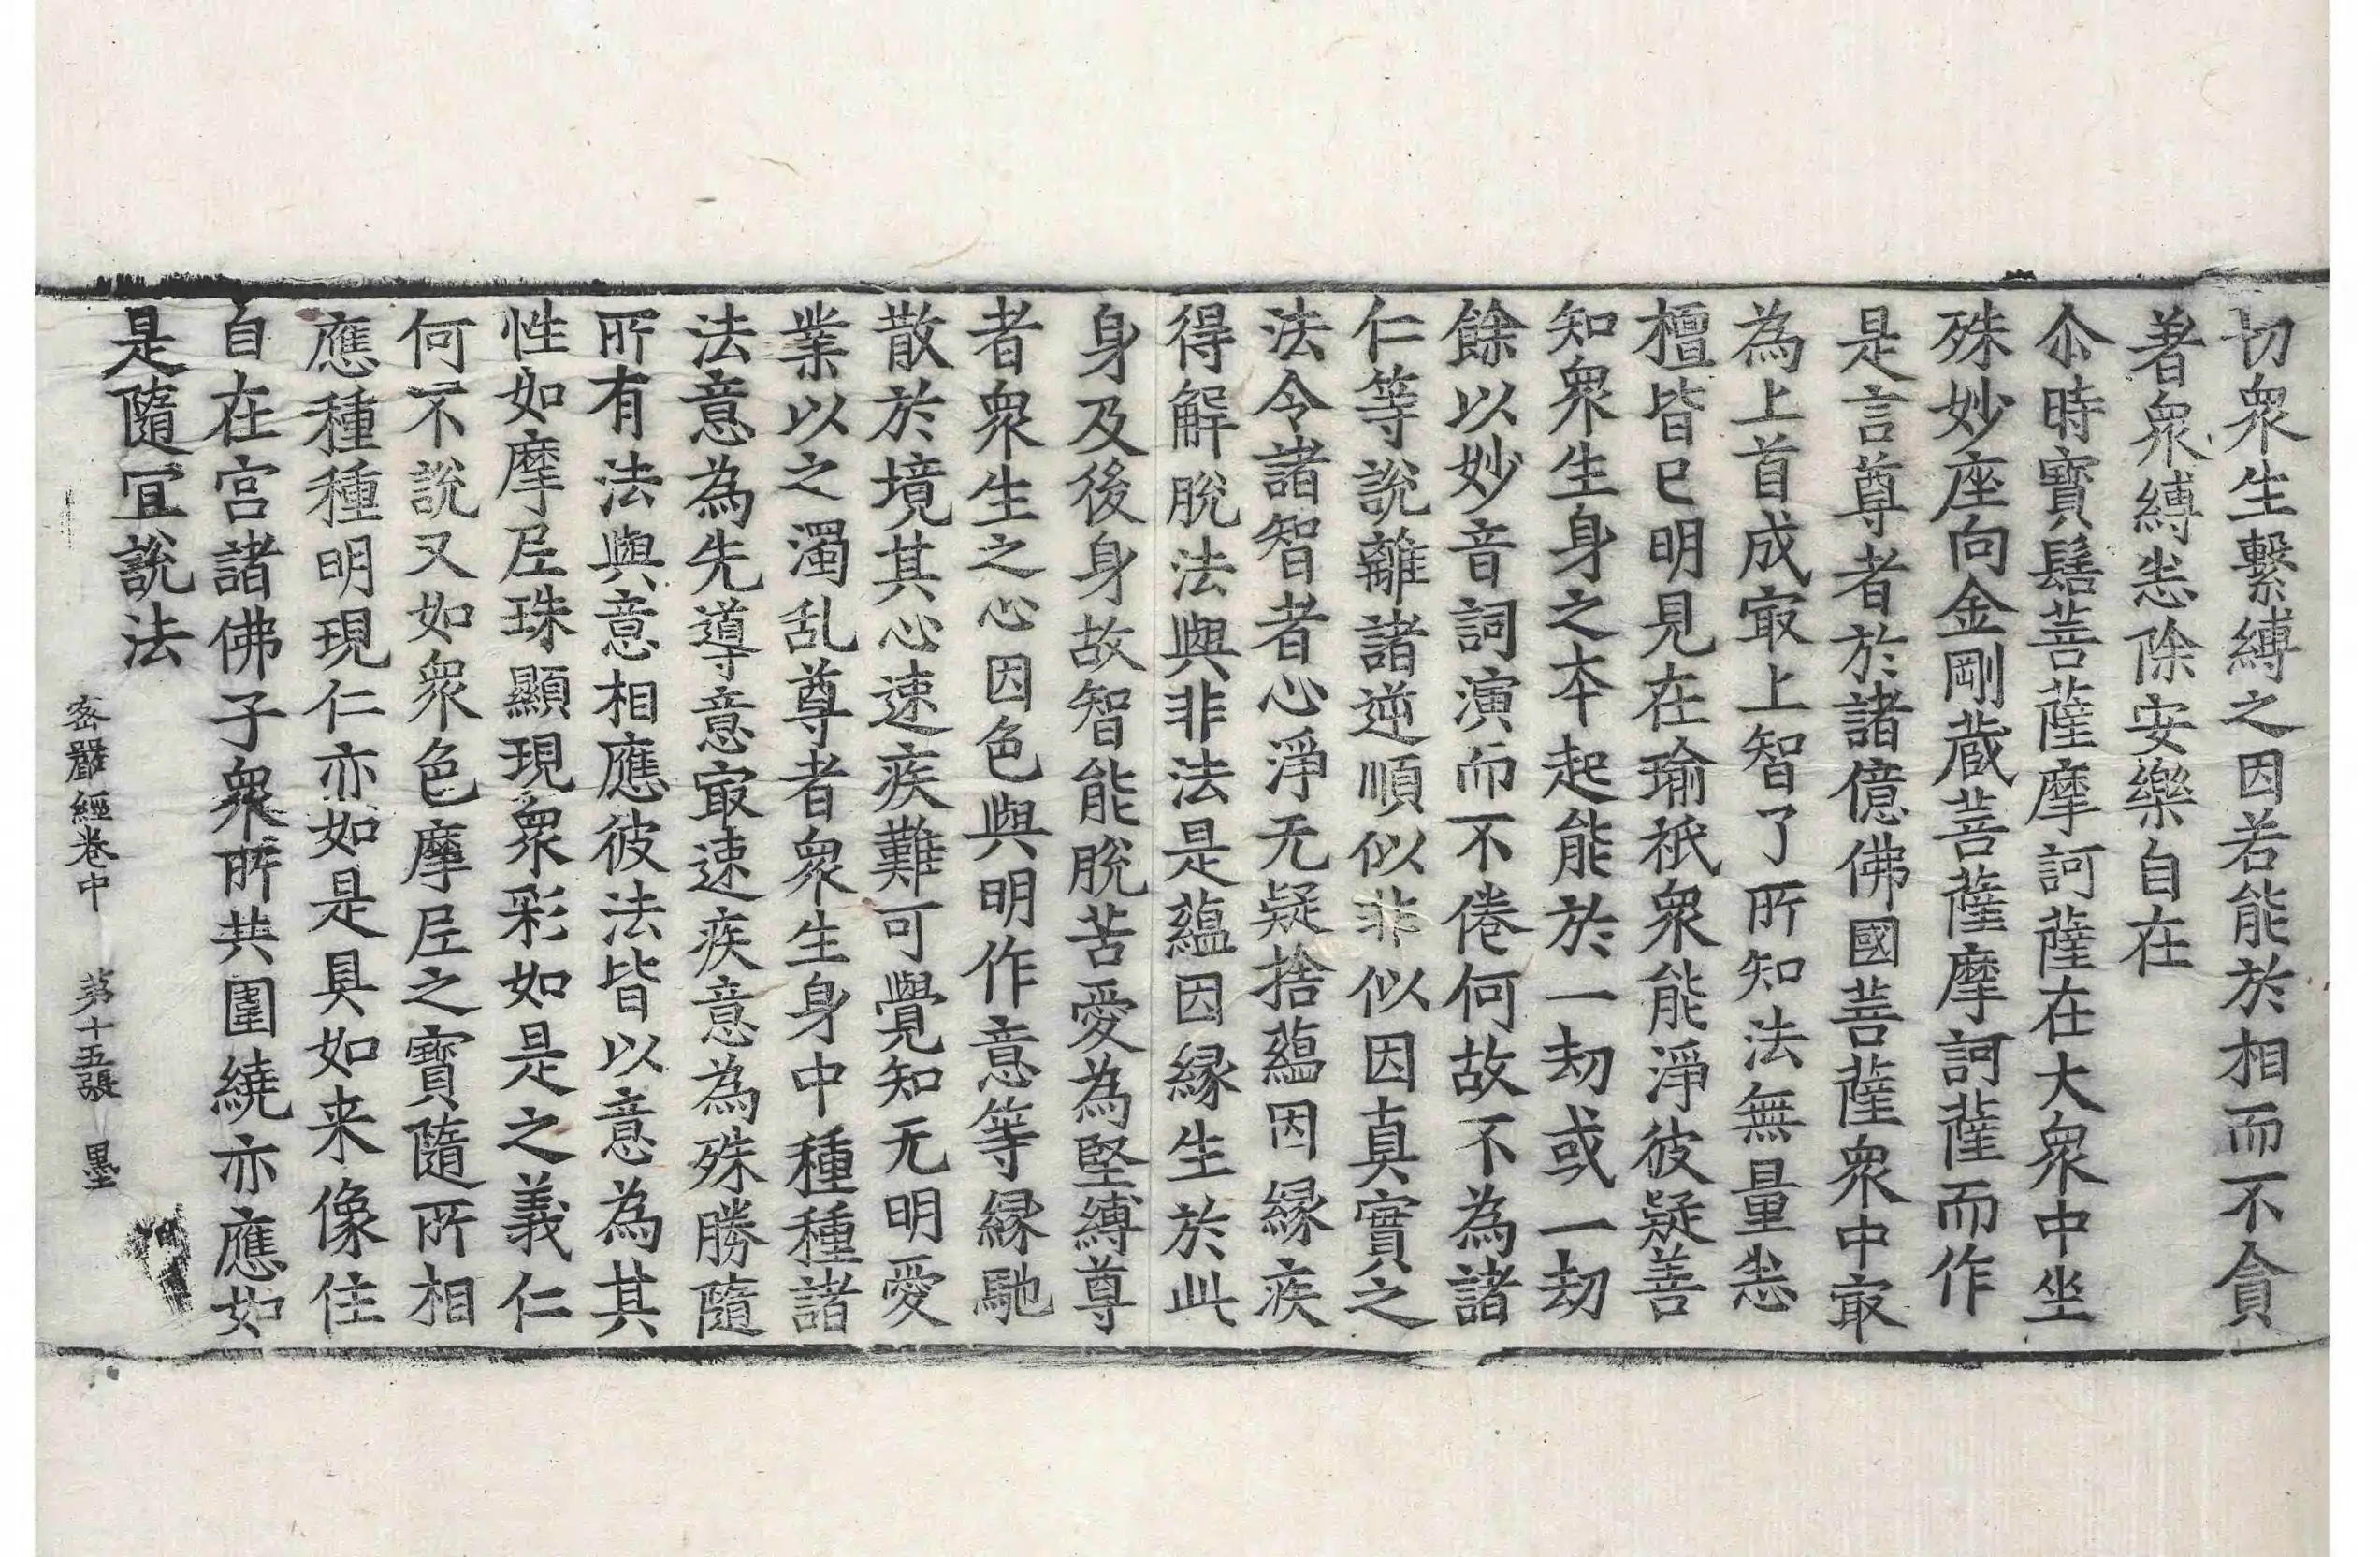 切衆生繫縛之因若能於相而不貪
著衆縛悉除安樂自在
尒時寳髻菩薩摩訶薩在大衆中坐
殊妙座向金剛蔵菩薩摩訶薩而作
是言尊者於諸億佛國菩薩衆中㝡
為上首成㝡上智了所知法無量悉
檀皆已明見在瑜祇衆能淨彼疑善
知衆生身之本起能於一劫或一劫
餘以妙音詞演而不倦何故不為諸
仁等說離諸逆順似非似因真實之
法令諸智者心淨无疑捨蘊因縁疾
得解脫法與非法是蘊因縁生於此
身及後身故智能脫苦愛為堅縛尊
者衆生之心因色與明作意等縁馳
散於境其心速疾難可覺知无明愛
業以之濁乱尊者衆生身中種種諸
法意為先導意㝡速疾意為殊勝隨
所有法與意相應彼法皆以意為其
性如摩尼珠顯現衆彩如是之義仁
何不說又如衆色摩尼之寳隨所相
應種種明現仁亦如是具如来像住
自在宫諸佛子衆所共圍繞亦應如
是隨冝說法
密嚴經卷中 第十五張 墨